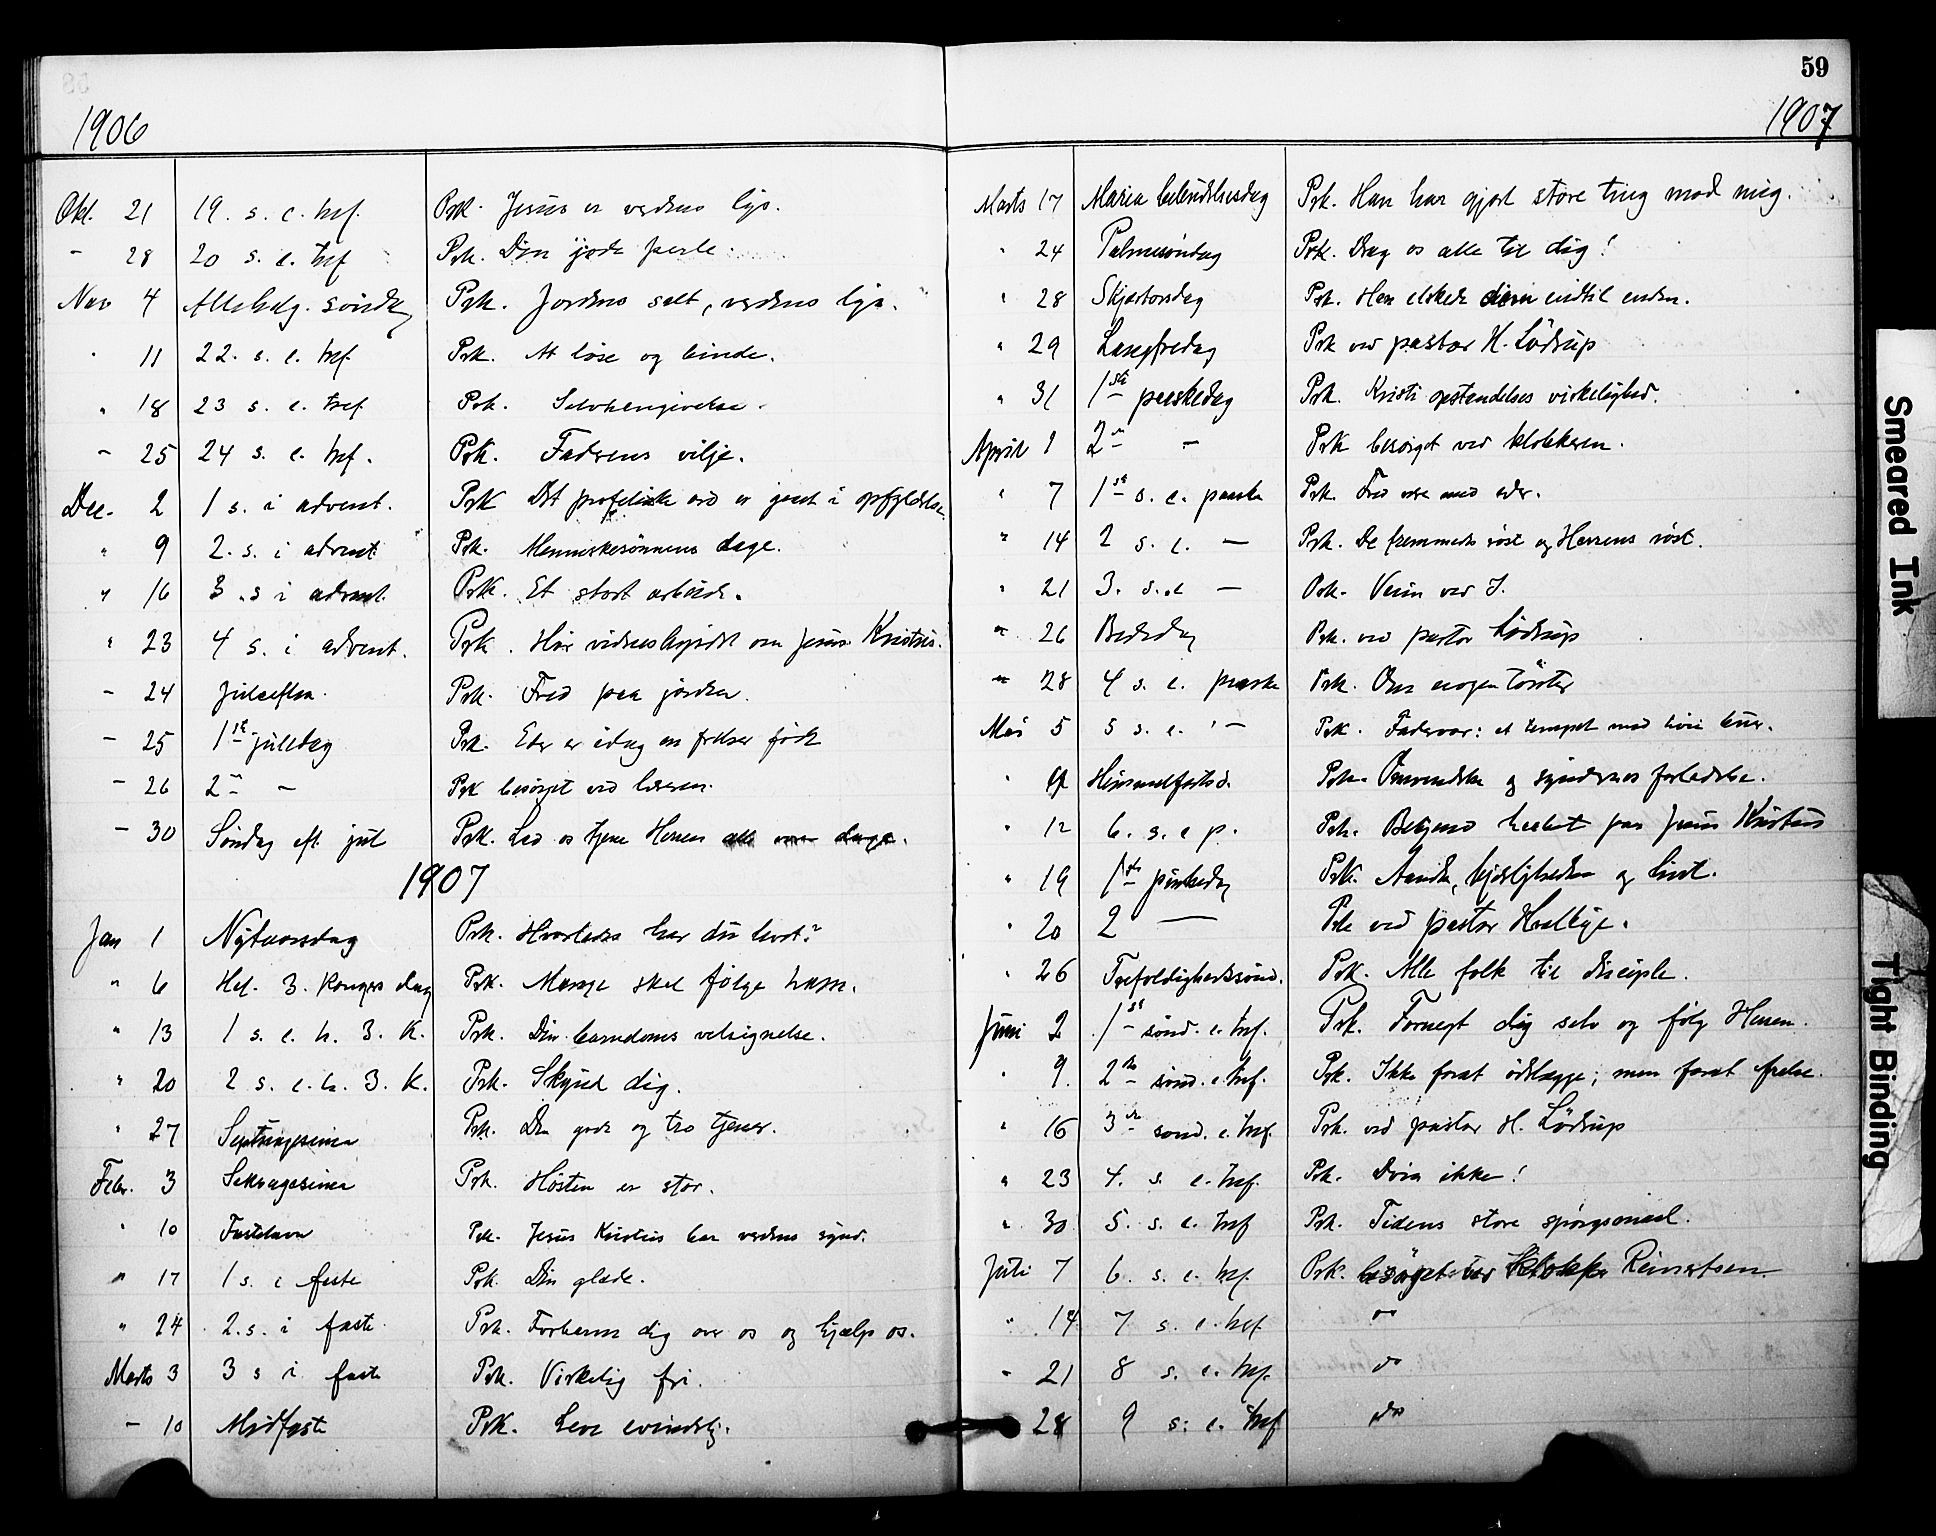 59
1906
Okt. 21 19. s. e. tref. Prk. Jesus er verdens lys.
- 28 20 s. e. tref Prk. Den gode perle.
Nov 4 Allehelg. söndag Prk. Jordens salt, verdens lys.
" 11 22. s. e. tref. Prk. At löse og binde.
" 18 23 s. e. tref. Prk. Selvhengivelse.
- 25 24 s. e. tref. Prk. Faderens vilje.
Dec. 2 1 s. i advent. Prk Det profetiske ord er gaaet i opfyldelse.
" 9 2. s. i advent Prk. Menneskesönnens dage.
" 16 3. s i advent. Prk. Et stort arbeide.
" 23 4 s. i advent. Prk. Hör vidnesbyrdet om Jesus Kristus.
- 24 Juleaften. Prk. Fred paa jorden.
- 25 1ste juledag Prk. Eder er idag en frelser födt
- 26 2den - Prk besörget ved læreren.
- 30 Söndag eft. jul Prk. Lad os tjene Herren alle vore dage.
1907
Jan 1 Nytaarsdag Prk. Hvorledes har du levet?
" 6 Hel. 3. Kongers dag Prk. Mange skal fölge ham.
" 13 1 s. e. h. 3. K. Prk. Din barndoms velsignelse.
" 20 2 s. e. h. 3. K. Prk. Skynd dig.
" 27 Septuagesima Prk. Den gode og tro tjener.
Febr. 3 Seksagesima Prk. Hösten er stor.
" 10 Fastelavn Prk. Jesus Kristus bar verdens synd.
" 17 1 s. i faste Prk. Din glæde.
" 24 2. s. i faste. Prk. Forbarm dig over os og hjælp os.
Marts 3 3 s i faste Prk. Virkelig fri.
- 10 Midfaste Prk. Leve evindelig.
1907
Marts 17 Maria bebudelsesdag Prk. Han har gjort store ting mod mig.
" 24 Palmesöndag Prk. Drag os alle til dig!
" 28 Skjærtorsdag Prk. Han elskede dem indtil enden.
" 29 Langfredag Prk ved pastor H. Lödrup
" 31 1ste paaskedag Prk. Kristi opstandelses virkelighed.
April 1 2den - Prk besörget ved klokkeren.
" 7 1ste s. e. paaske Prk. Fred være med eder.
" 14 2 s. e. - Prk. De fremmedes röst og Herrens röst.
" 21 3. s. e - Prk. Veien ved J.
" 26 Bededag Prk. ved pastor Lödrup
" 28 4 s. e. paaske Prk. Om nogen törster
Mai 5 5 s. e. - Prk. Fadervor: et tempel med höie buer.
" 9 Himmelfartsd. Prk. Omvendelse og syndernes forladelse.
" 12 6. s. e p. Prk. Bekjend herlivet paa Jesus Kristus
" 19 1ste pinsedag Prk. Aanden, kjærligheden og livet.
" 20 2 - Prk ved pastor Hallige.
" 26 Trefoldighedssönd. Prk. Alle folk til disciple.
Juni 2 1ste sönd. e. tref. Prk. Fornegt dig selv og fölg Herren.
" 9. 2den sönd. e. tref. Prk. Ikke forat ödelægge; men forat frelse.
" 16 3die sönd. e. tref. Prk. ved pastor H. Lödrup
" 23 4. s. e. tref. Prk. Döm ikke!
" 30 5. s. e. tref Prk. Tidens store spörgsmaal.
Juli 7 6. s. e. tref. Prk. besörget ved Klokker Reinertsen.
" 14 7 s. e. tref. do
" 21 8 s. e. tref. do
28 9 s. e. tref do
Smeared Ink
Tight Binding